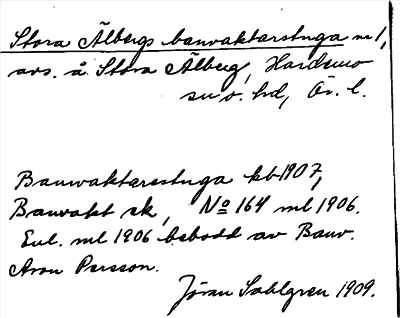 Stora Älbergs banvaktarstuga nr 1,
avs. å Stora Älberg, Hardemo
sn o. hd, Ör. l.
Banvaktarestuga kb 1907,
Banvakt sk, No 164 ml 1906.
Enl. ml 1906 bebodd av Banv.
Aron Persson.
Jöran Sahlgren 1909.